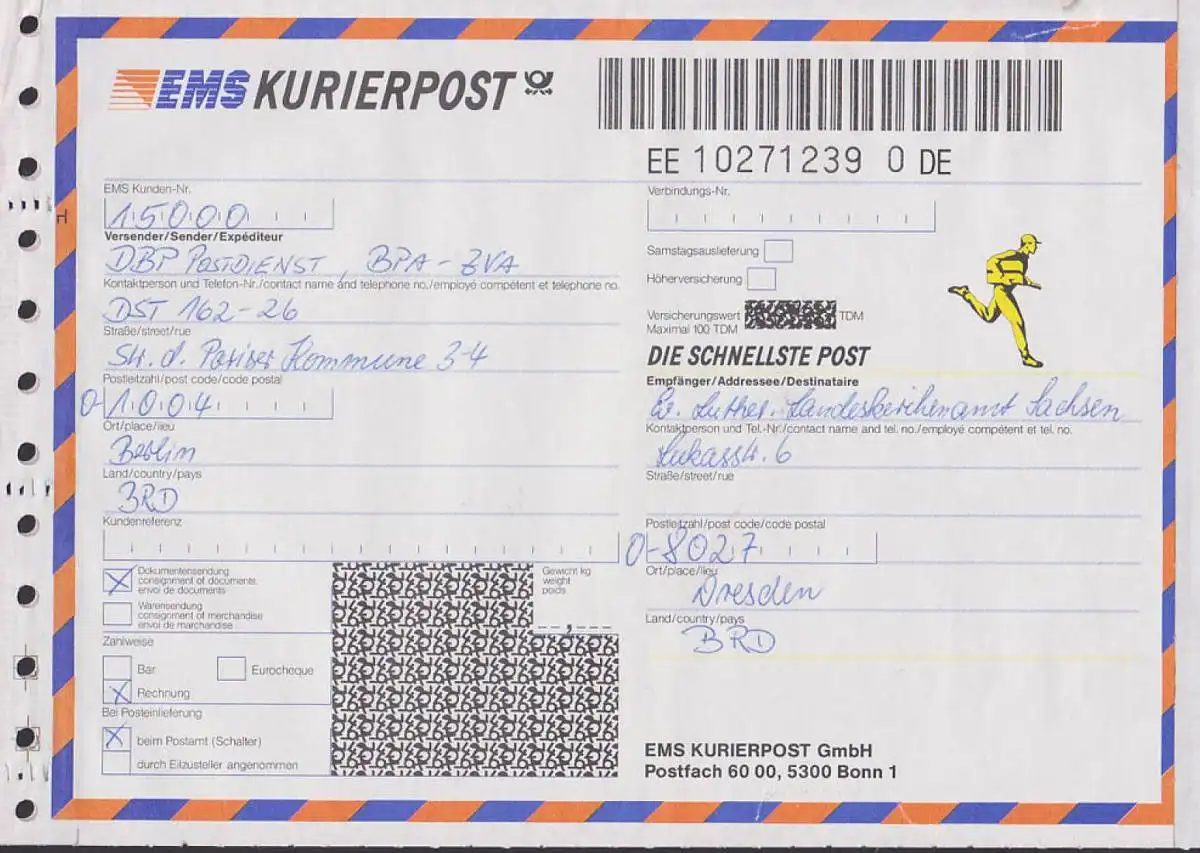 EMS KURIERPOST
EE 10271239 0 DE
EMS Kunden-Nr.
15000
Versender/Sender/Expéditeur
DBP POSTDIENST, BPA-ZVA
Kontaktperson und Telefon-Nr./contact name and telephone no./employé compétent et telephone no.
DST 162-26
Straße/street/rue
Str. d. Pariser Kommune 3-4
Postleitzahl/post code/code postal
O-1004
Ort/place/lieu
Berlin
Land/country/pays
BRD
Kundenreferenz
Dokumentensendung
consignment of documents
envoi de documents
Warensendung
consignment of merchandise
envoi de marchandise
Gewicht kg
weight
poids
Zahlweise
Bar
Eurocheque
Rechnung
Bei Posteinlieferung
beim Postamt (Schalter)
durch Eilzusteller angenommen
Verbindungs-Nr.
Samstagsauslieferung
Höherversicherung
Versicherungswert TDM
Maximal 100 TDM
DIE SCHNELLSTE POST
Empfänger/Addressee/Destinataire
Ev. Luther. Landeskirchenamt Sachsen
Kontaktperson und Tel.-Nr./contact name and tel. no./employé compétent et tel. no.
Lukasstr. 6
Straße/street/rue
Postleitzahl/post code/code postal
O-8027
Ort/place/lieu
Dresden
Land/country/pays
BRD
EMS KURIERPOST GmbH
Postfach 60 00, 5300 Bonn 1